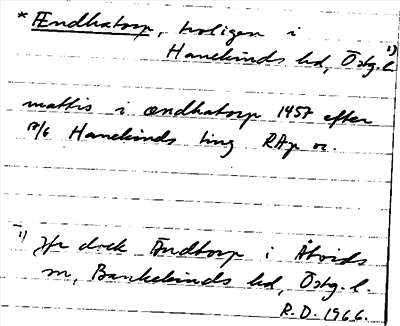 * Ændhatorp, troligen i
Hanekinds hd, Östg. l. 1)
mattis i ændhatorp 1457 efter
18/6 Hanekinds ting RAp or.
1) Jfr dock Ändtorp i Åtvids
sn, Bankekinds hd, Östg. l.
R.D. 1966.